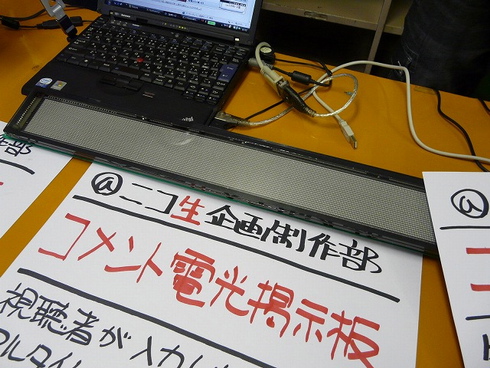 @ニコ生企画制作部
コメント電光掲示板
視聴者が入力し
アルタイ
作部
@
ThinkPad